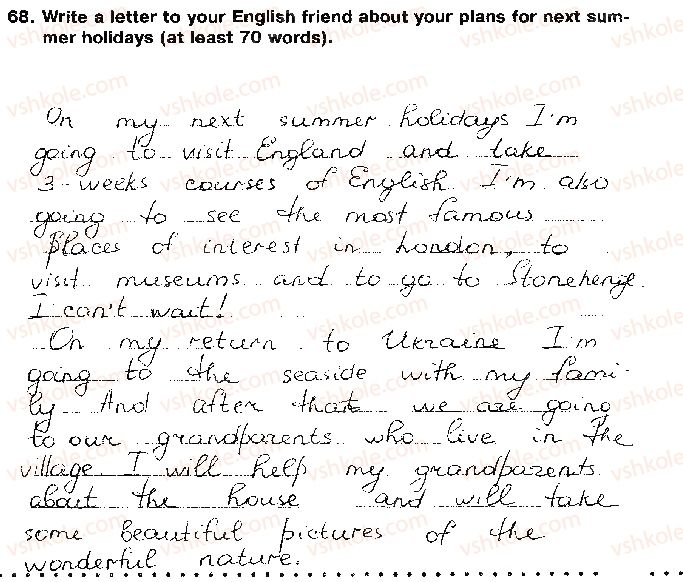 68. Write a letter to your English friend about your plans for next sum-
mer holidays (at least 70 words).
On my next summer holidays I'm
going to visit England and take
3-weeks courses of English. I'm also
going to see the most famous
places of interest in London, to
visit museums and to go to Stonehenge.
I can't wait!
On my return to Ukraine I'm
going to the seaside with my fami-
ly. And after that we are going
to our grandparents who live in the
village. I will help my grandparents
about the house and will take
some beautiful pictures of the
wonderful nature.